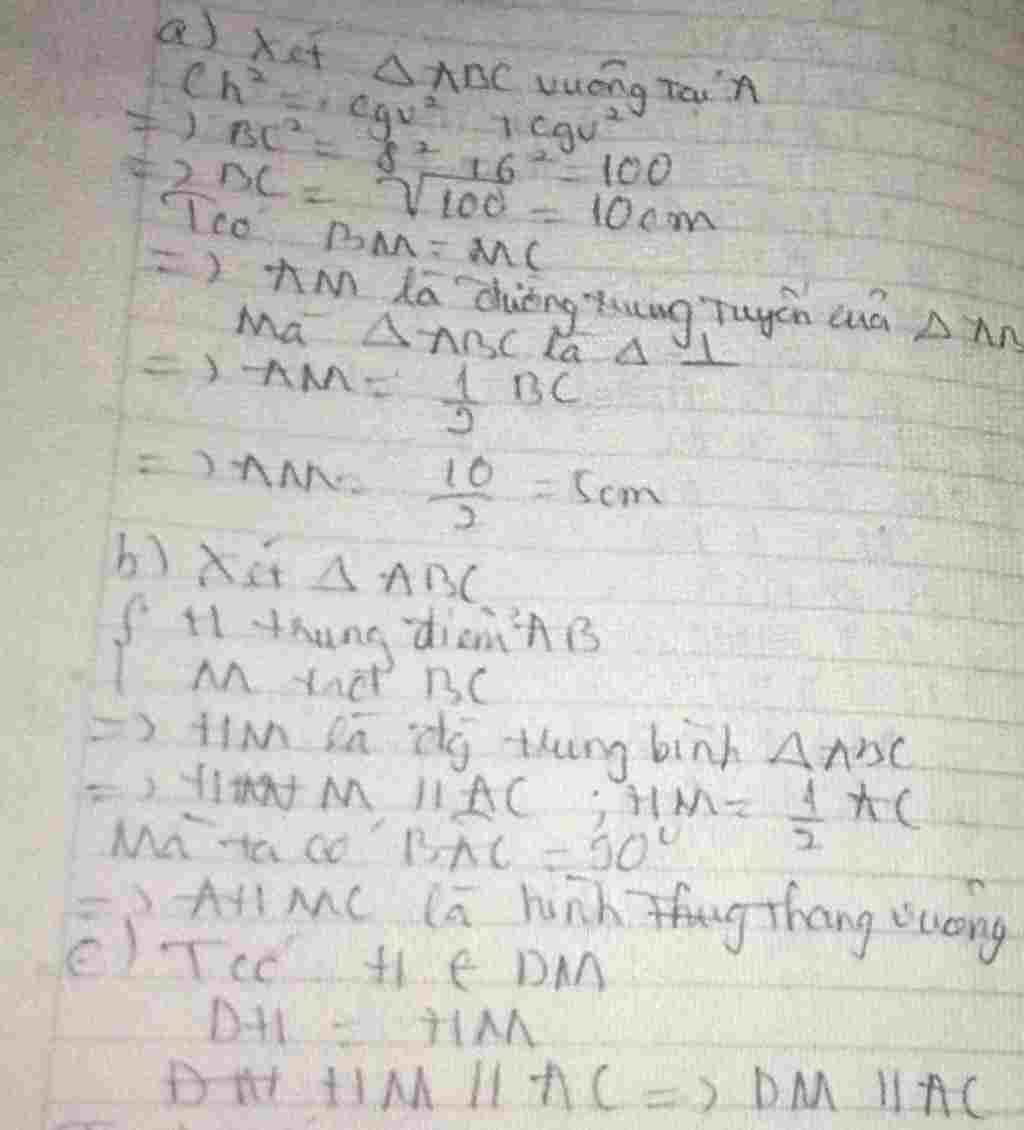 a) Xét Δ ABC vuông tại A
Ch² = cgv² + cgv²
=> BC² = 8² + 6² = 100
=> BC = √100 = 10cm
Tcó BM = MC
=> AM là đường trung tuyến của Δ AB
Mà Δ ABC là Δ ⊥
=> AM = 1/2 BC
=> AM = 10/2 = 5cm
b) Xét Δ ABC
{ H trung điểm AB
M BC
=> HM là đg trung bình Δ ABC
=> M // AC ; HM = 1/2 AC
Mà ta có BAC = 90°
=> AHMC là hình thang vuông
c) Tcó H ∈ DM
DH = HM
HM // AC => DM // AC